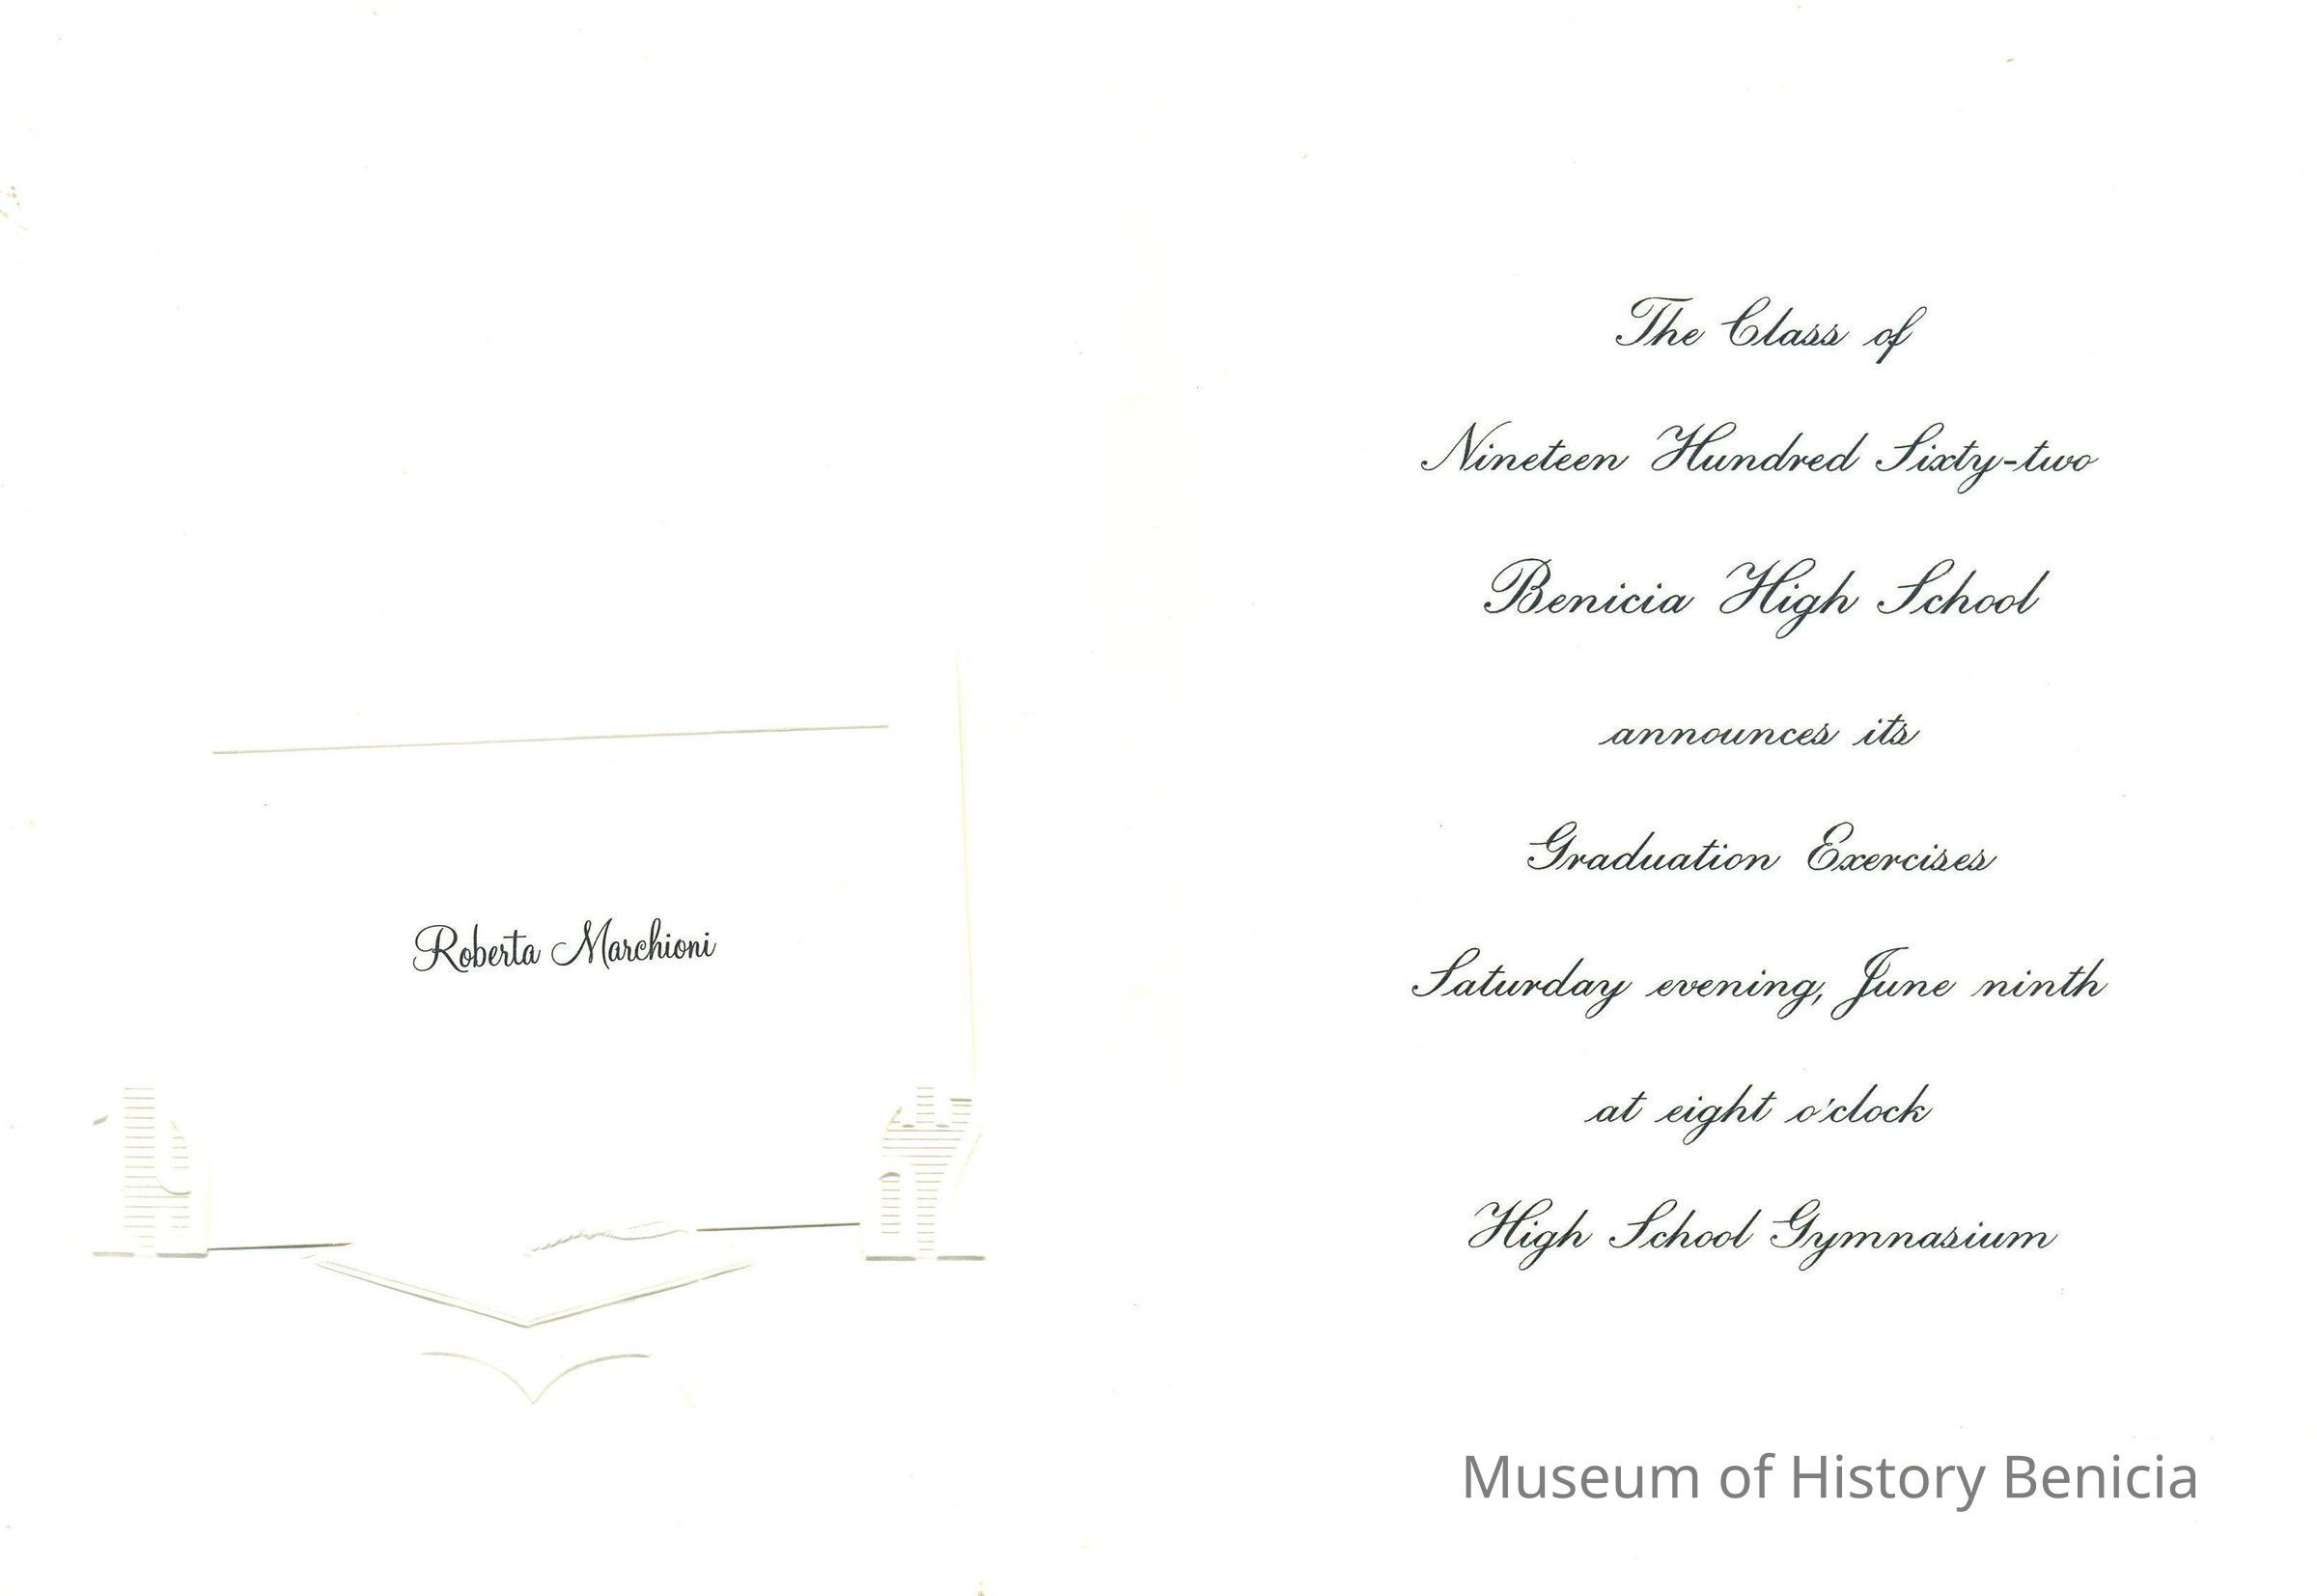 Roberta Marchioni
The Class of
Nineteen Hundred Sixty-two
Benicia High School
announces its
Graduation Exercises
Saturday evening, June ninth
at eight o'clock
High School Gymnasium
Museum of History Benicia